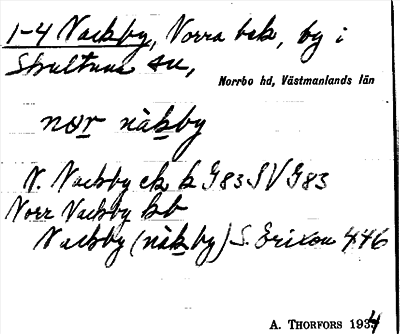 1-4 Nackby, Norra bek, by i
Skultuna sn,
Norrbo hd, Västmanlands län
nor näkby
N. Nackby ek k G83 SV G83
Norr Nackby kb
Nackby (näkby) S. Erixon 446
A. THORFORS 1934